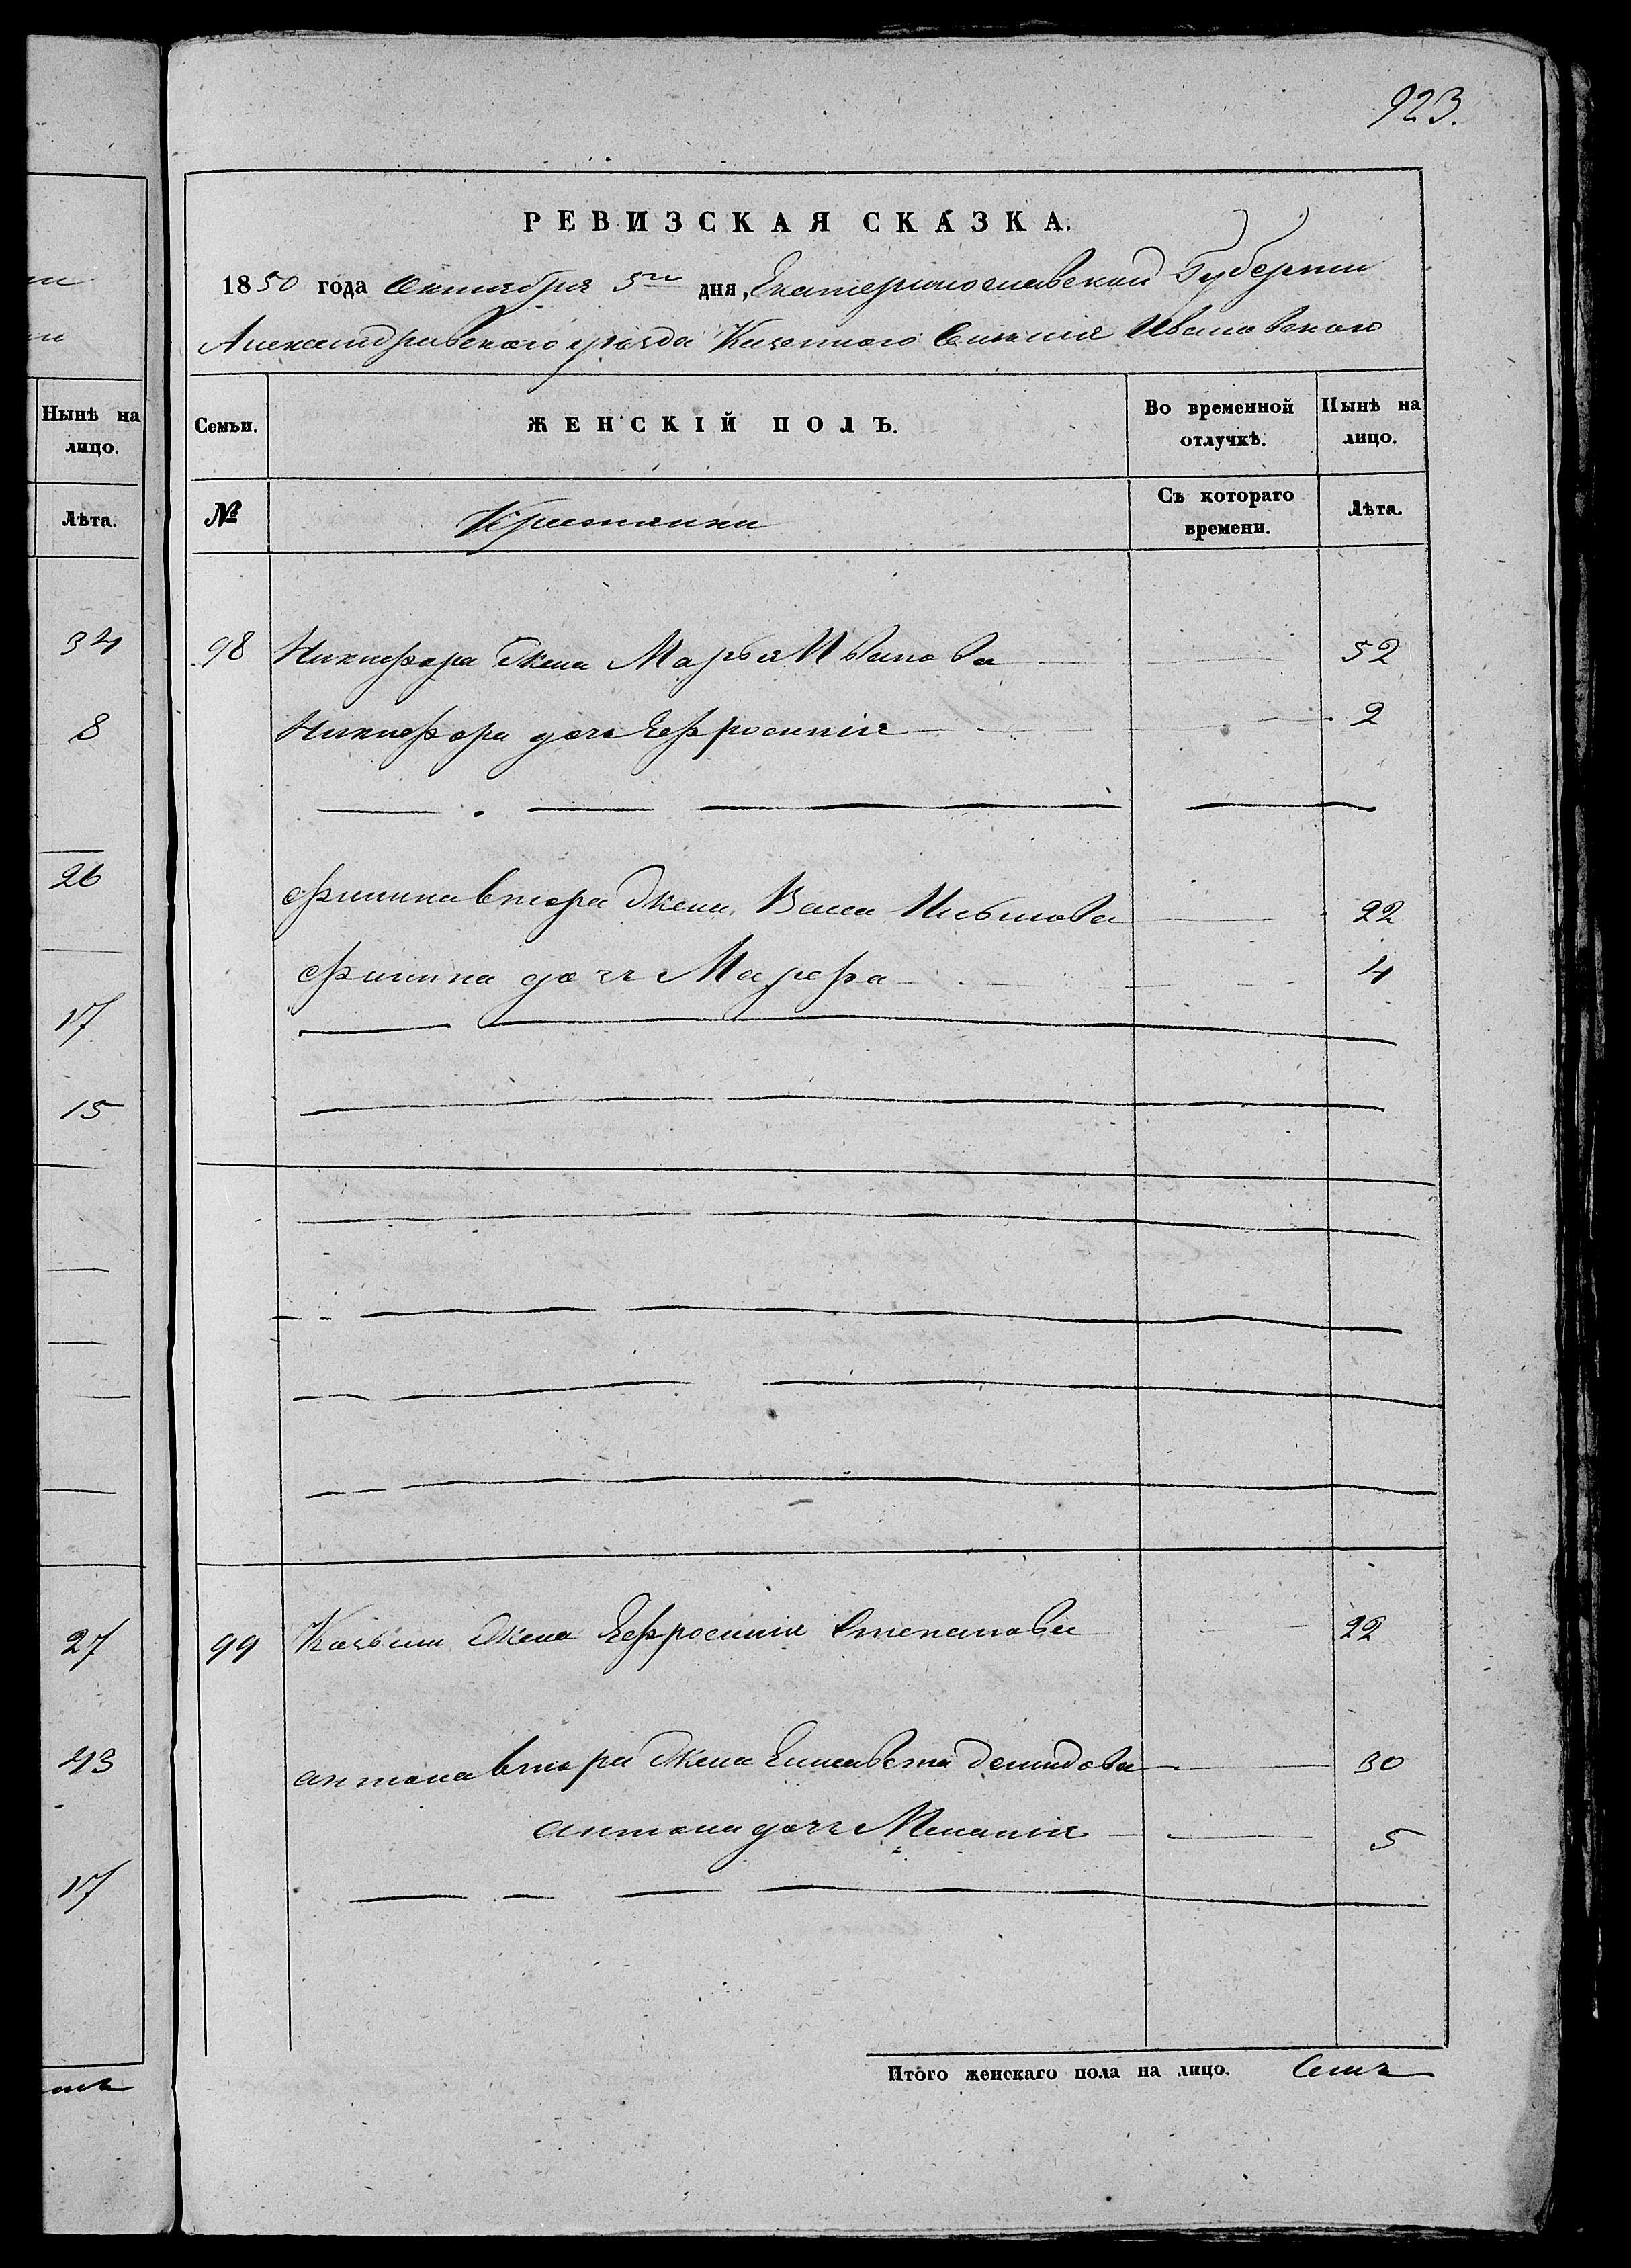 923.
РЕВИЗСКАЯ СКАЗКА.
1850 года Октября 5го дня, Екатеринославской Губернии
Александровского уезда Казенного Селения Ивановского
Нынѣ на лицо.
Лѣта.
34
8
26
17
15
27
43
17
Семьи.
ЖЕНСКІЙ ПОЛЪ.
Во временной отлучкѣ.
Нынѣ на лицо.
№
Крестьянки
Съ котораго времени.
Лѣта.
98 Никифора жена Марья Иванова 52
Никифора дочь Ефросинія 2
Филипа втора жена Васса Иванова 22
Филипа дочь Марфа 4
99 Козьми жена Ефросинія Степанова 22
Антона втора жена Елисавета Демидова 30
Антона дочь Меланія 5
Итого женскаго пола на лицо. Семь